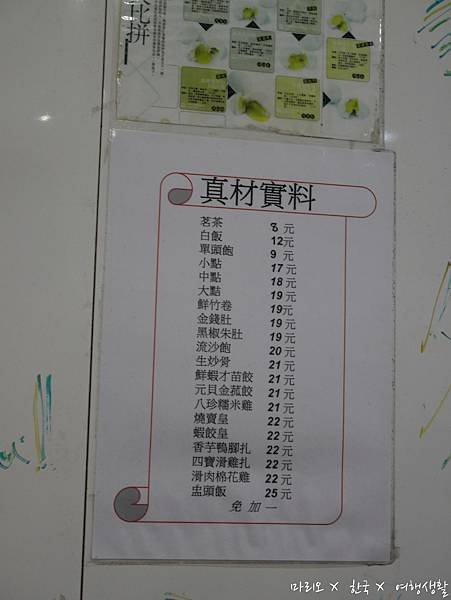 比拼
真材實料
茗茶 8 元
白飯 12元
單頭飽 9 元
小點 17 元
中點 18 元
大點 19 元
鮮竹卷 19元
金錢肚 19 元
黑椒朱肚 19 元
流沙飽 20 元
生炒骨 21 元
鮮蝦才苗餃 21 元
元貝金菰餃 21 元
八珍糯米雞 21 元
燒賣皇 22 元
蝦餃皇 22 元
香芋鴨腳扎 22 元
四寶滑雞扎 22 元
滑肉棉花雞 22 元
盅頭飯 25 元
免加一
마리오 × 한국 × 여행생활